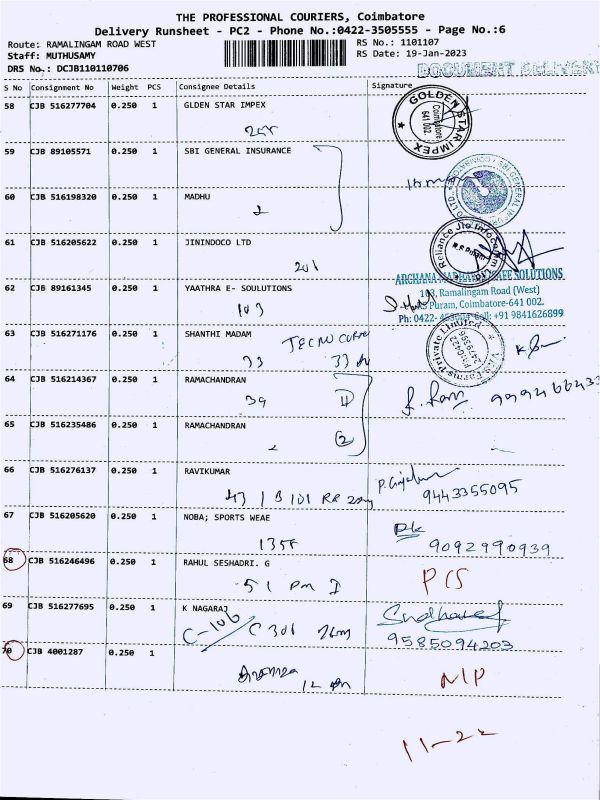 THE PROFESSIONAL COURIERS, Coimbatore
Delivery Runsheet - PC2 - Phone No.:0422-3505555 - Page No.:6
Route: RAMALINGAM ROAD WEST RS No.: 1101107
Staff: MUTHUSAMY RS Date: 19-Jan-2023
DRS No.: DCJB110110706 DOCUMENT DELIVERY
S No Consignment No Weight PCS Consignee Details Signature
58 CJB 516277704 0.250 1 GLDEN STAR IMPEX
GOLDEN STAR IMPEX
Coimbatore
641 002.
59 CJB 89105571 0.250 1 SBI GENERAL INSURANCE
SBI GENERAL
60 CJB 516198320 0.250 1 MADHU
2
61 CJB 516205622 0.250 1 JINNDOCO LTD
201
Reliance Jio Infocomm Ltd
62 CJB 89161345 0.250 1 YAATHRA E- SOULUTIONS
103
ARCHANA SAFE SOLUTIONS
103, Ramalingam Road (West)
Puram, Coimbatore-641 002.
Ph: 0422- Cell: +91 9841626899
63 CJB 516271176 0.250 1 SHANTHI MADAM
33
Farms Private Limited
64 CJB 516214367 0.250 1 RAMACHANDRAN
39
65 CJB 516235486 0.250 1 RAMACHANDRAN
2
66 CJB 516276137 0.250 1 RAVIKUMAR
43 1 B 101 RR
9443355095
67 CJB 516205620 0.250 1 NOBA; SPORTS WEAE
9092990939
68 CJB 516246496 0.250 1 RAHUL SESHADRI. G
51 PCS
69 CJB 516277695 0.250 1 K NAGARAJ
C-106 C 301
9585094203
70 CJB 4001287 0.250 1
NIP
11-22